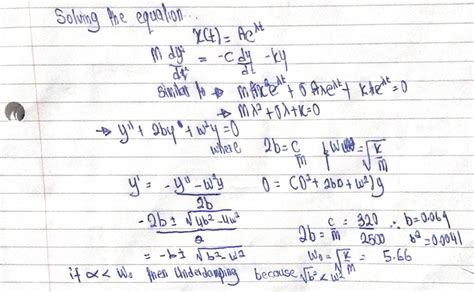 Solving the equation...
x(t) = Ae^λt
M dy²/dt² = -C dy/dt - ky
similar to → mAλ²e^λt + 0Aλe^λt + kAe^λt = 0
→ Mλ² + 0λ + K = 0
→ y'' + 2by' + ω²y = 0
where 2b = C/m , ω = √(K/m)
y' = (-y'' - ω²y)/2b    0 = (D² + 2bD + ω²)y
(-2b ± √(4b² - 4ω²))/2    2b = C/m = 320/2500 ∴ b = 0.064
b² = 0.0041
= -b ± √(b² - ω²)    ω₀ = √(K/M) = 5.66
if α < ω₀ then Underdamping because √b² < ω²